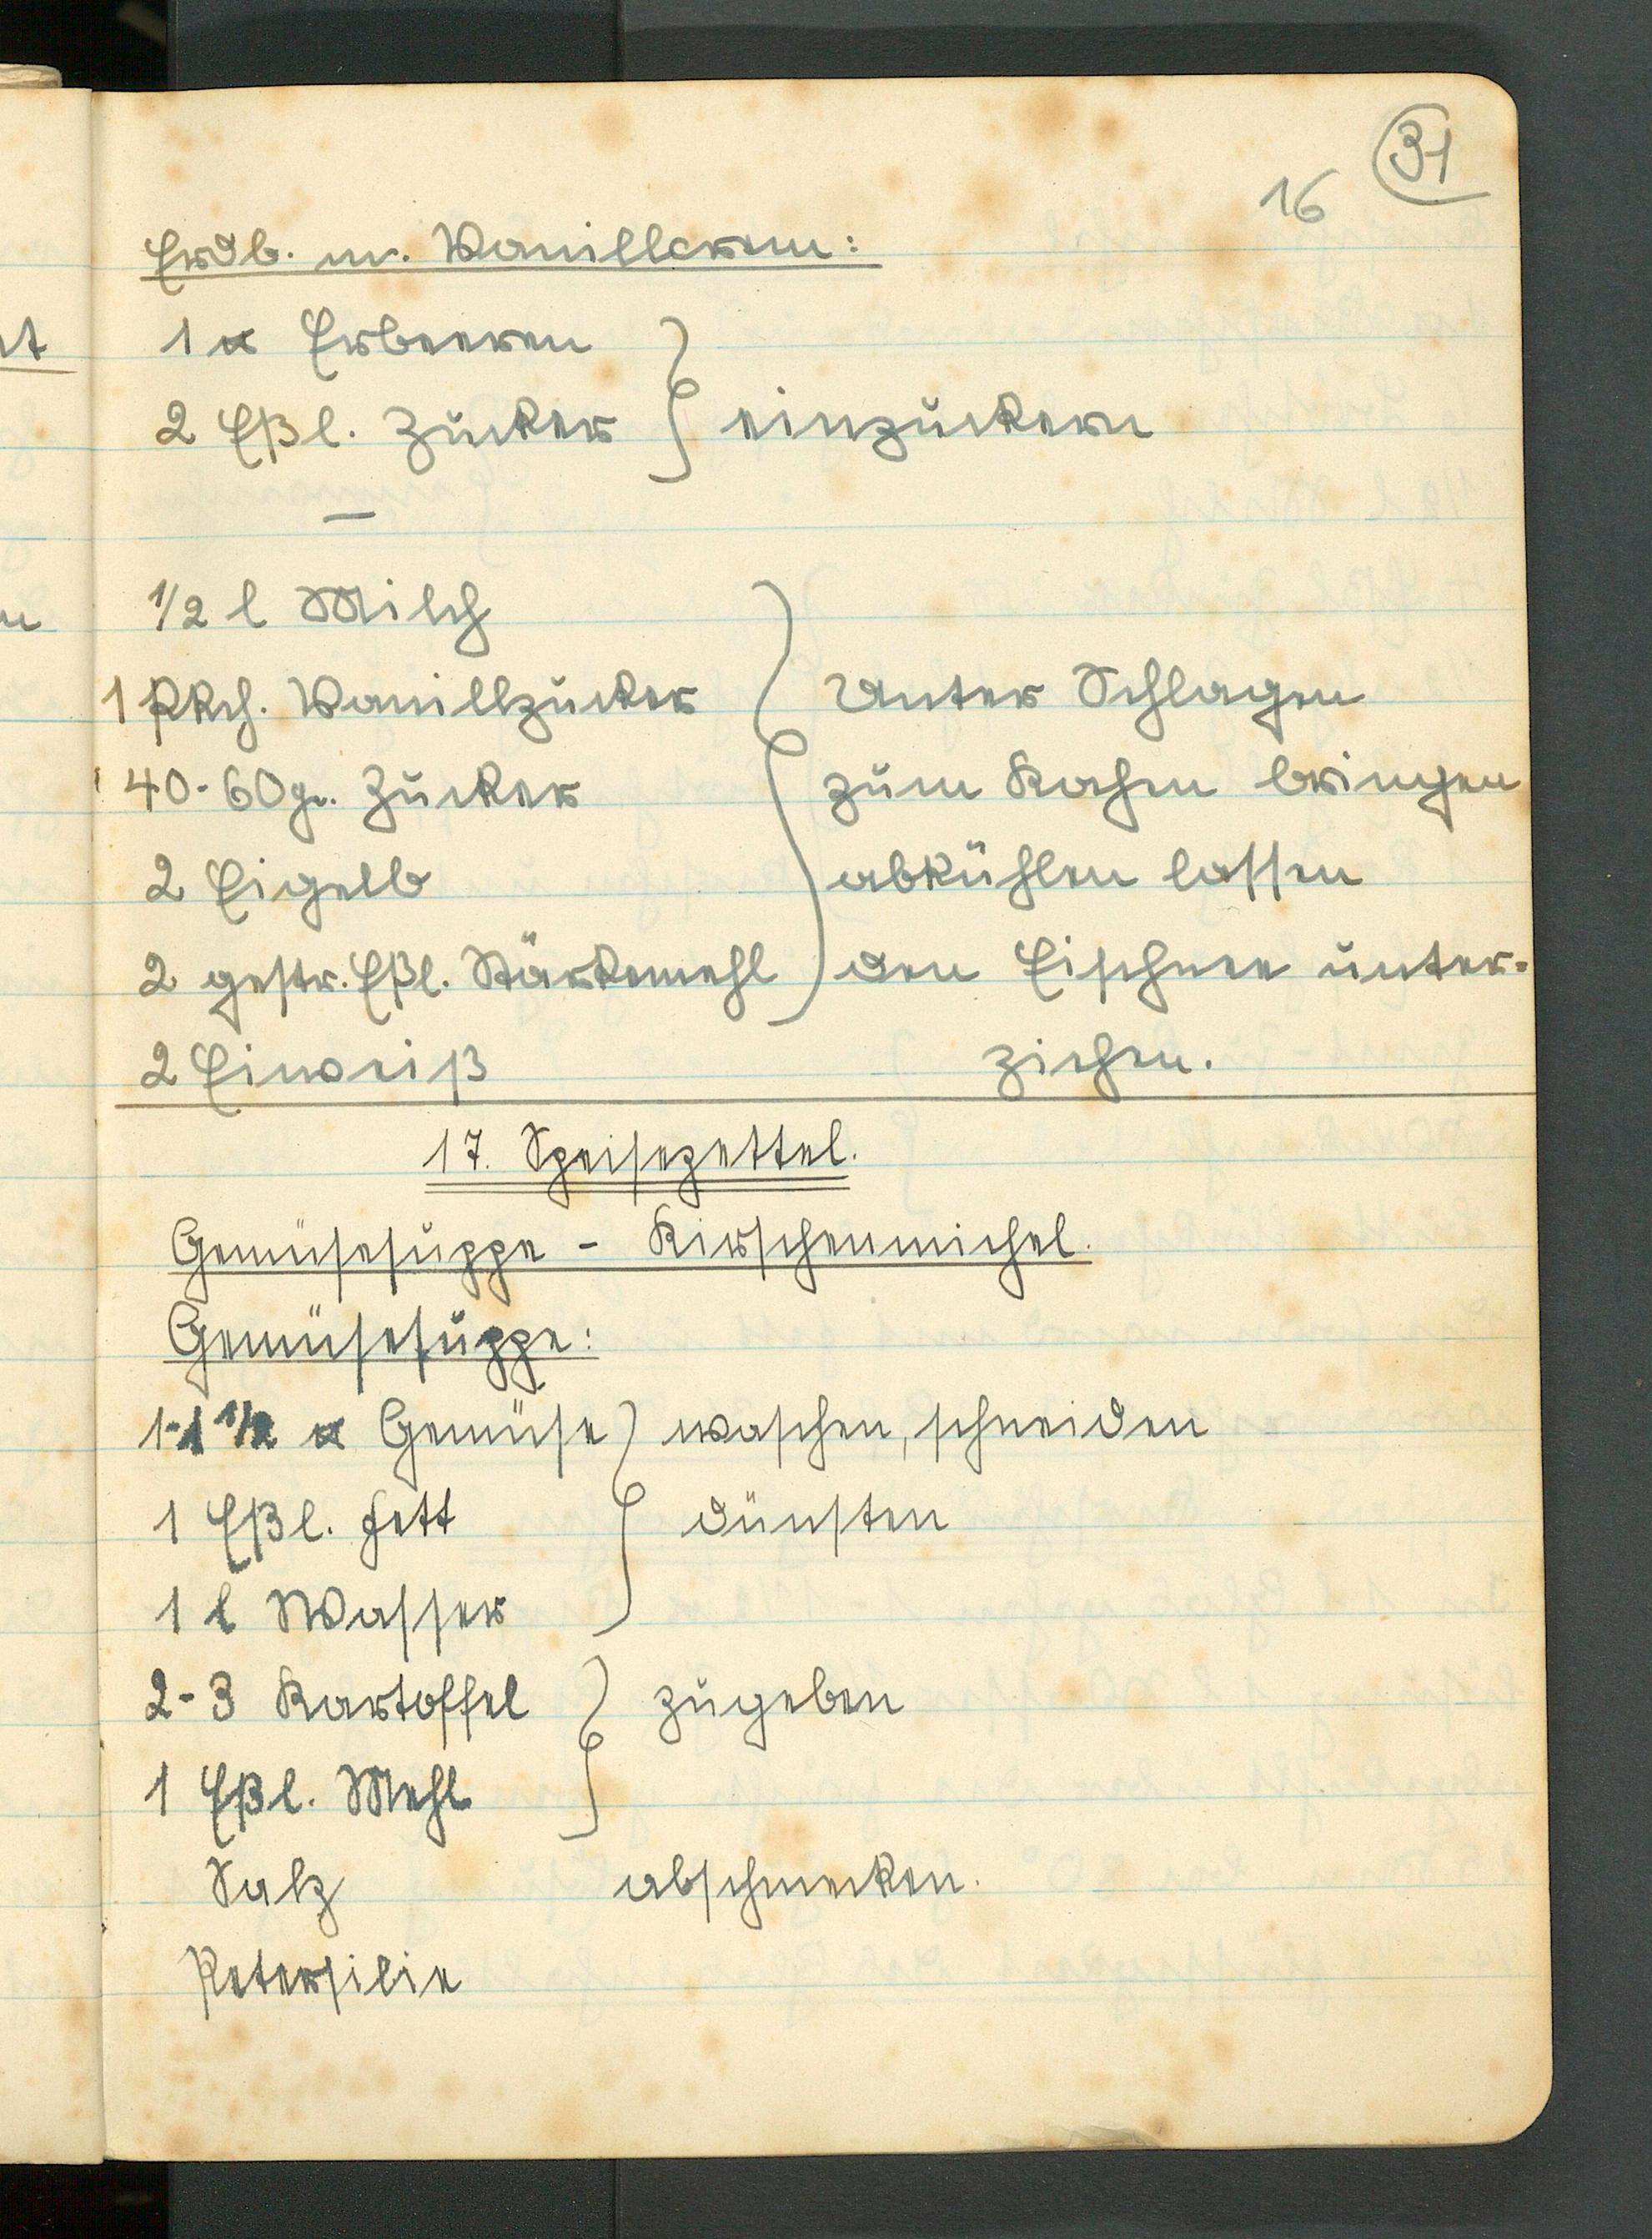 31
16
Erdb. m. Vanillcrem:
1 ℔ Erbeeren
2 Eßl. Zucker } einzuckern
—
1/2 l Milch
1 Pkch. Vanillzucker } Unter Schlagen
40-60gr. Zucker zum Kochen bringen
2 Eigelb abkühlen lassen
2 gestr. Eßl. Stärkemehl den Eischnee unter-
2 Eiweiß ziehen.
17. Speisezettel.
Gemüsesuppe - Kirschenmichel.
Gemüsesuppe:
1-1 1/2 ℔ Gemüse } waschen, schneiden
1 Eßl. Fett dünsten
1 l Wasser
2-3 Kartoffel } zugeben
1 Eßl. Mehl
Salz abschmecken.
Petersilie